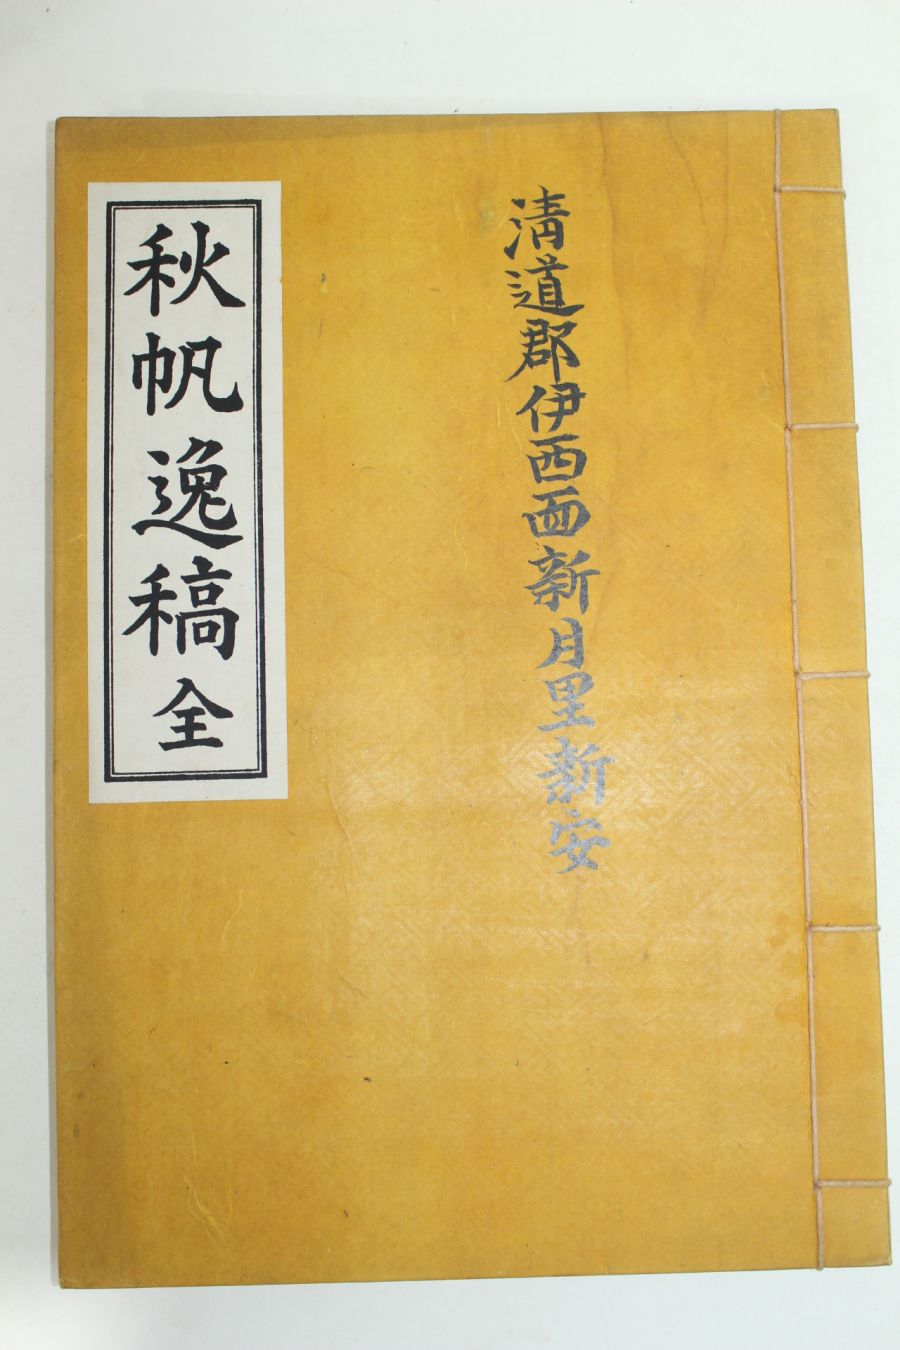 淸道郡伊西面新月里新安
秋帆逸稿 全